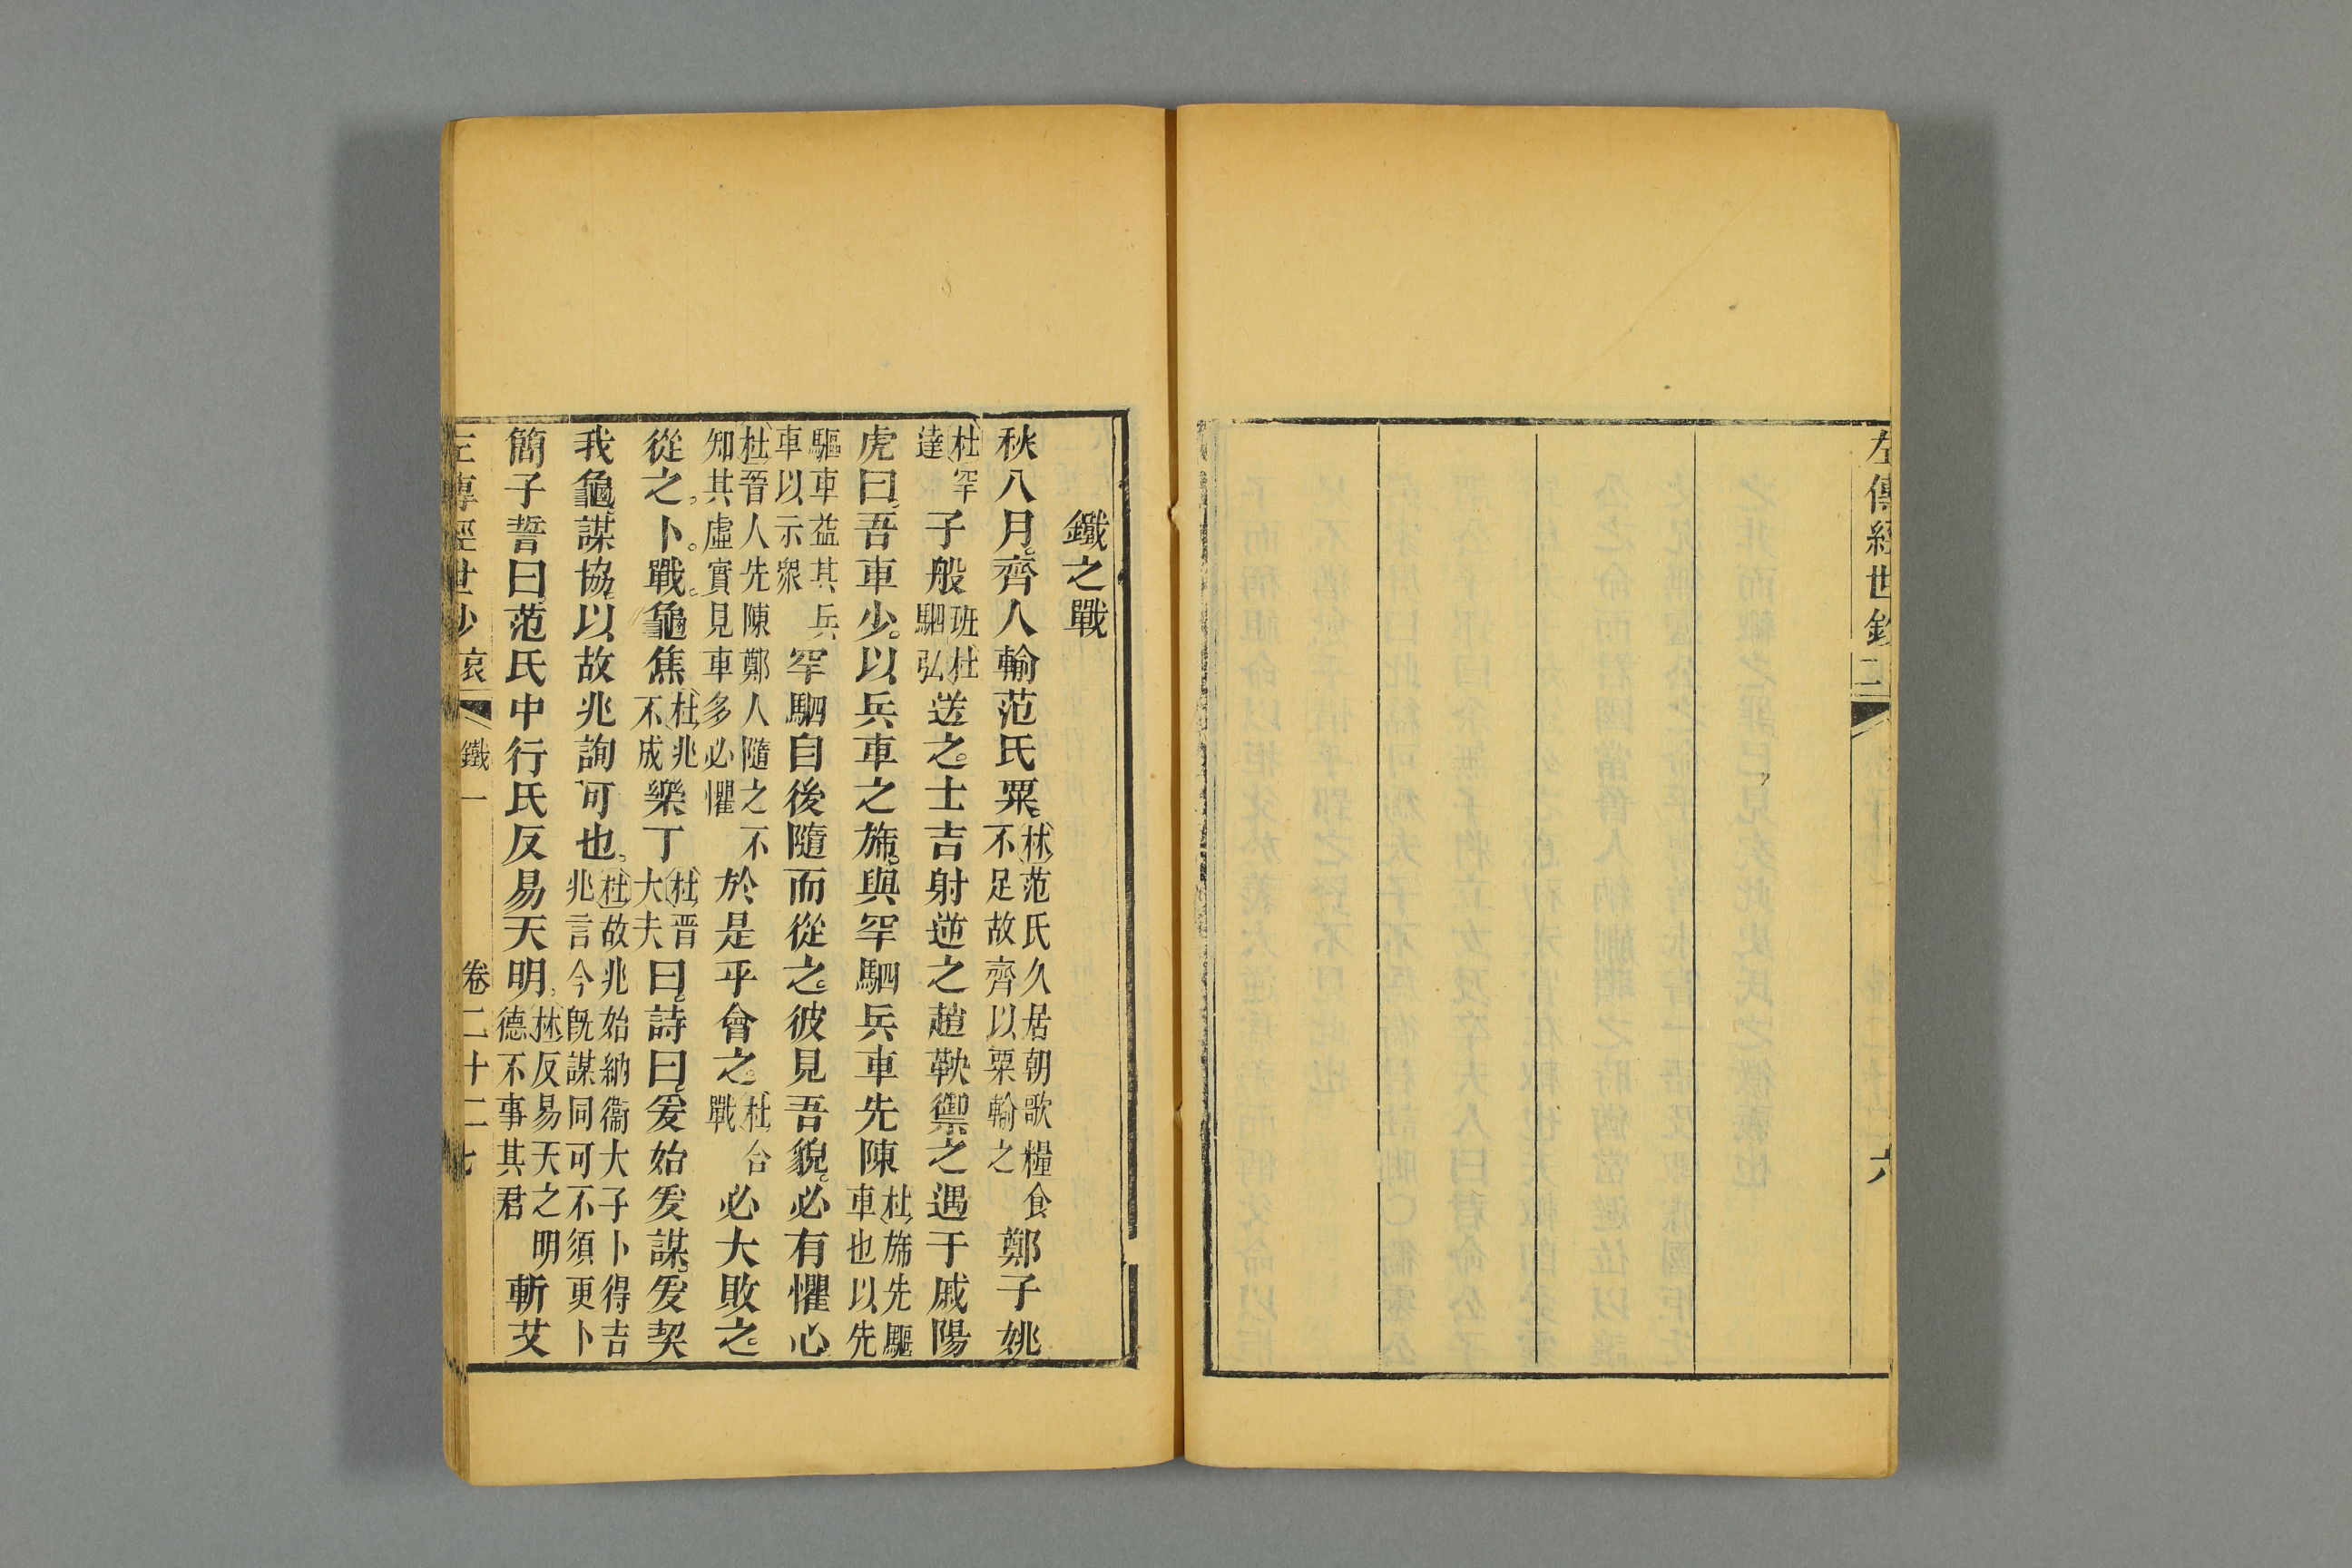 左傳經世鈔
六
鐵之戰
秋八月齊人輸范氏粟林范氏久居朝歌糧食不足故齊以粟輸之鄭子姚
杜罕達子般班杜駟弘送之士吉射逆之趙鞅禦之遇于戚陽
虎曰吾車少以兵車之旆與罕駟兵車先陳杜旆先驅車也以先
驅車益其兵車以示眾罕駟自後隨而從之彼見吾貌必有懼心
杜晉人先陳鄭人隨之不知其虛實見車多必懼於是乎會之杜合戰必大敗之
從之卜戰龜焦杜兆不成樂丁杜晉大夫曰詩曰爰始爰謀爰契
我龜謀協以故兆詢可也杜故兆始納衞大子卜得吉兆言今既謀同可不須更卜
簡子誓曰范氏中行氏反易天明林反易天之明德不事其君斬艾
左傳經世鈔哀 鐵一 卷二十二 七